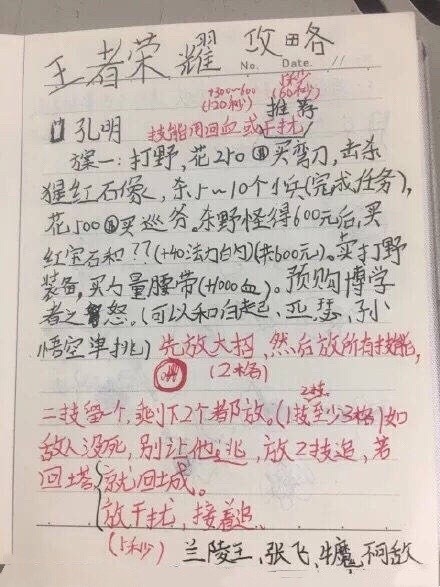 王者荣耀 攻略
No. Date. 11
+300~600
(120秒)
1秒
(60秒)
推荐
孔明 技能用回血或干扰
方案一:打野,花250买弯刀,击杀
猩红石像,杀5~10个小兵(完成任务),
花500买巡守。杀野怪得600元后,买
红宝石和??(+40法力白内)(共600元)。卖打野
装备,买力量腰带(+1000血)。预购博学
者之怒。(可以和白起、亚瑟、孙
悟空单挑)先放大招,然后放所有技能,
(2格)
2技
二技留一个,剩下2个都放。(1技至少3格)如
敌人没死,别让他逃,放2技追,若
回塔 就回城。
放干扰,接着追
(1秒)
兰陵王、张飞、牛魔,不可敌